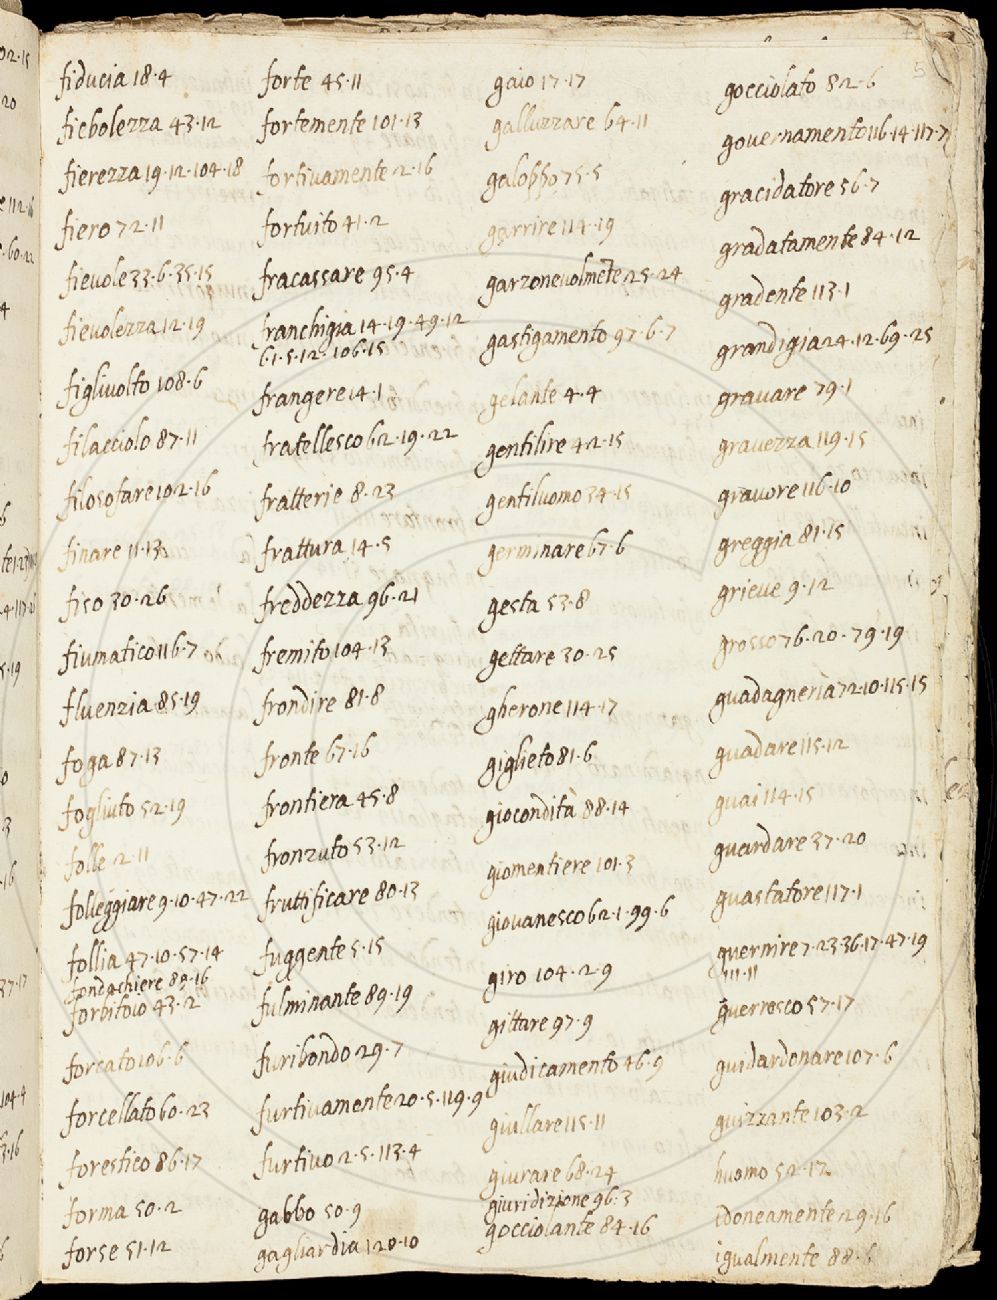 fiducia 18·4
fiebolezza 43·12
fierezza 19·12·104·18
fiero 72·11
fievole 33·6·35·15
fievolezza 12·19
figliuolto 108·6
filacciolo 87·11
filosofare 102·16
finare 11·13
fiso 30·26
fiumatico 116·7
fluenzia 85·19
foga 87·13
fogliuto 52·19
folle 2·11
folleggiare 9·10·47·22
follia 47·10·57·14
fondachiere 89·16
forbitoio 43·2
forcato 106·6
forcellato 60·23
forestico 86·17
forma 50·2
forse 51·12
forte 45·11
fortemente 101·13
fortivamente 2·16
fortuito 41·2
fracassare 95·4
franchigia 14·19·49·12
61·5·12·106·15
frangere 14·1
fratellesco 62·19·22
fratterie 8·23
frattura 14·5
freddezza 96·21
fremito 104·13
frondire 81·8
fronte 67·16
frontiera 45·8
fronzuto 53·12
fruttificare 80·13
fuggente 5·15
fulminante 89·19
furibondo 29·7
furtivamente 20·5·119·9
furtivo 2·5·113·4
gabbo 50·9
gagliardia 120·10
gaio 17·17
galluzzare 64·11
galoppo 75·5
garrire 114·19
garzonevolmēte 25·24
gastigamento 97·6·7
gelante 4·4
gentilire 42·15
gentiluomo 34·15
germinare 67·6
gesta 53·8
gettare 30·25
gherone 114·17
giglieto 81·6
giocondità 88·14
giomentiere 101·3
giovanesco 62·1·99·6
giro 104·2·9
gittare 97·9
giudicamento 46·9
giullare 115·11
giurare 68·24
giuridizione 96·3
gocciolante 84·16
gocciolato 82·6
governamento 116·14·117·7
gracidatore 56·7
gradatamente 84·12
gradente 113·1
grandigia 24·12·69·25
gravare 79·1
gravezza 119·15
gravore 116·10
greggia 81·15
grieve 9·12
grosso 76·20·79·19
guadagneria 72·10·115·15
guadare 115·12
guai 114·15
guardare 37·20
guastatore 117·1
guernire 7·23·36·17·47·19
111·11
guerresco 57·17
guidardonare 107·6
guizzante 103·2
huomo 52·12
idoneamente 29·16
igualmente 88·6